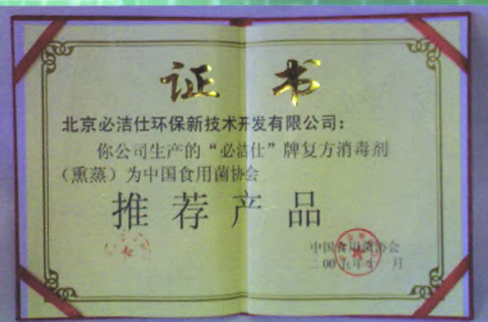 证 书
北京必洁仕环保新技术开发有限公司：
你公司生产的“必洁仕”牌复方消毒剂
（熏蒸）为中国食用菌协会
推荐产品
中国食用菌协会
二00 年 月